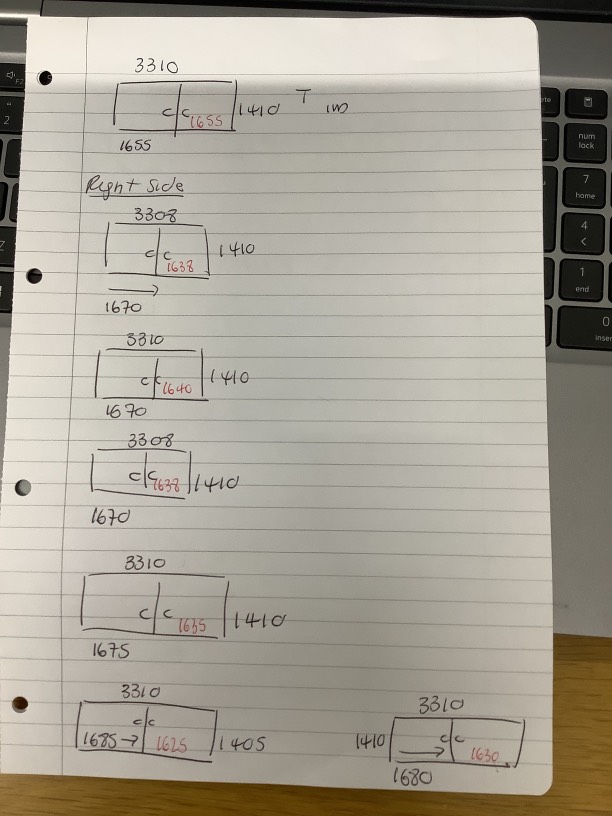 3310
C C 1655 1410 T
1655
Right side
3308
C C 1638 1410
1670
3310
C C 1640 1410
1670
3308
C C 1638 1410
1670
3310
C C 1635 1410
1675
3310
C C
1685 → 1625 1405
3310
1410 C C 1630
1680
num
lock
7
home
4
1
end
0
2